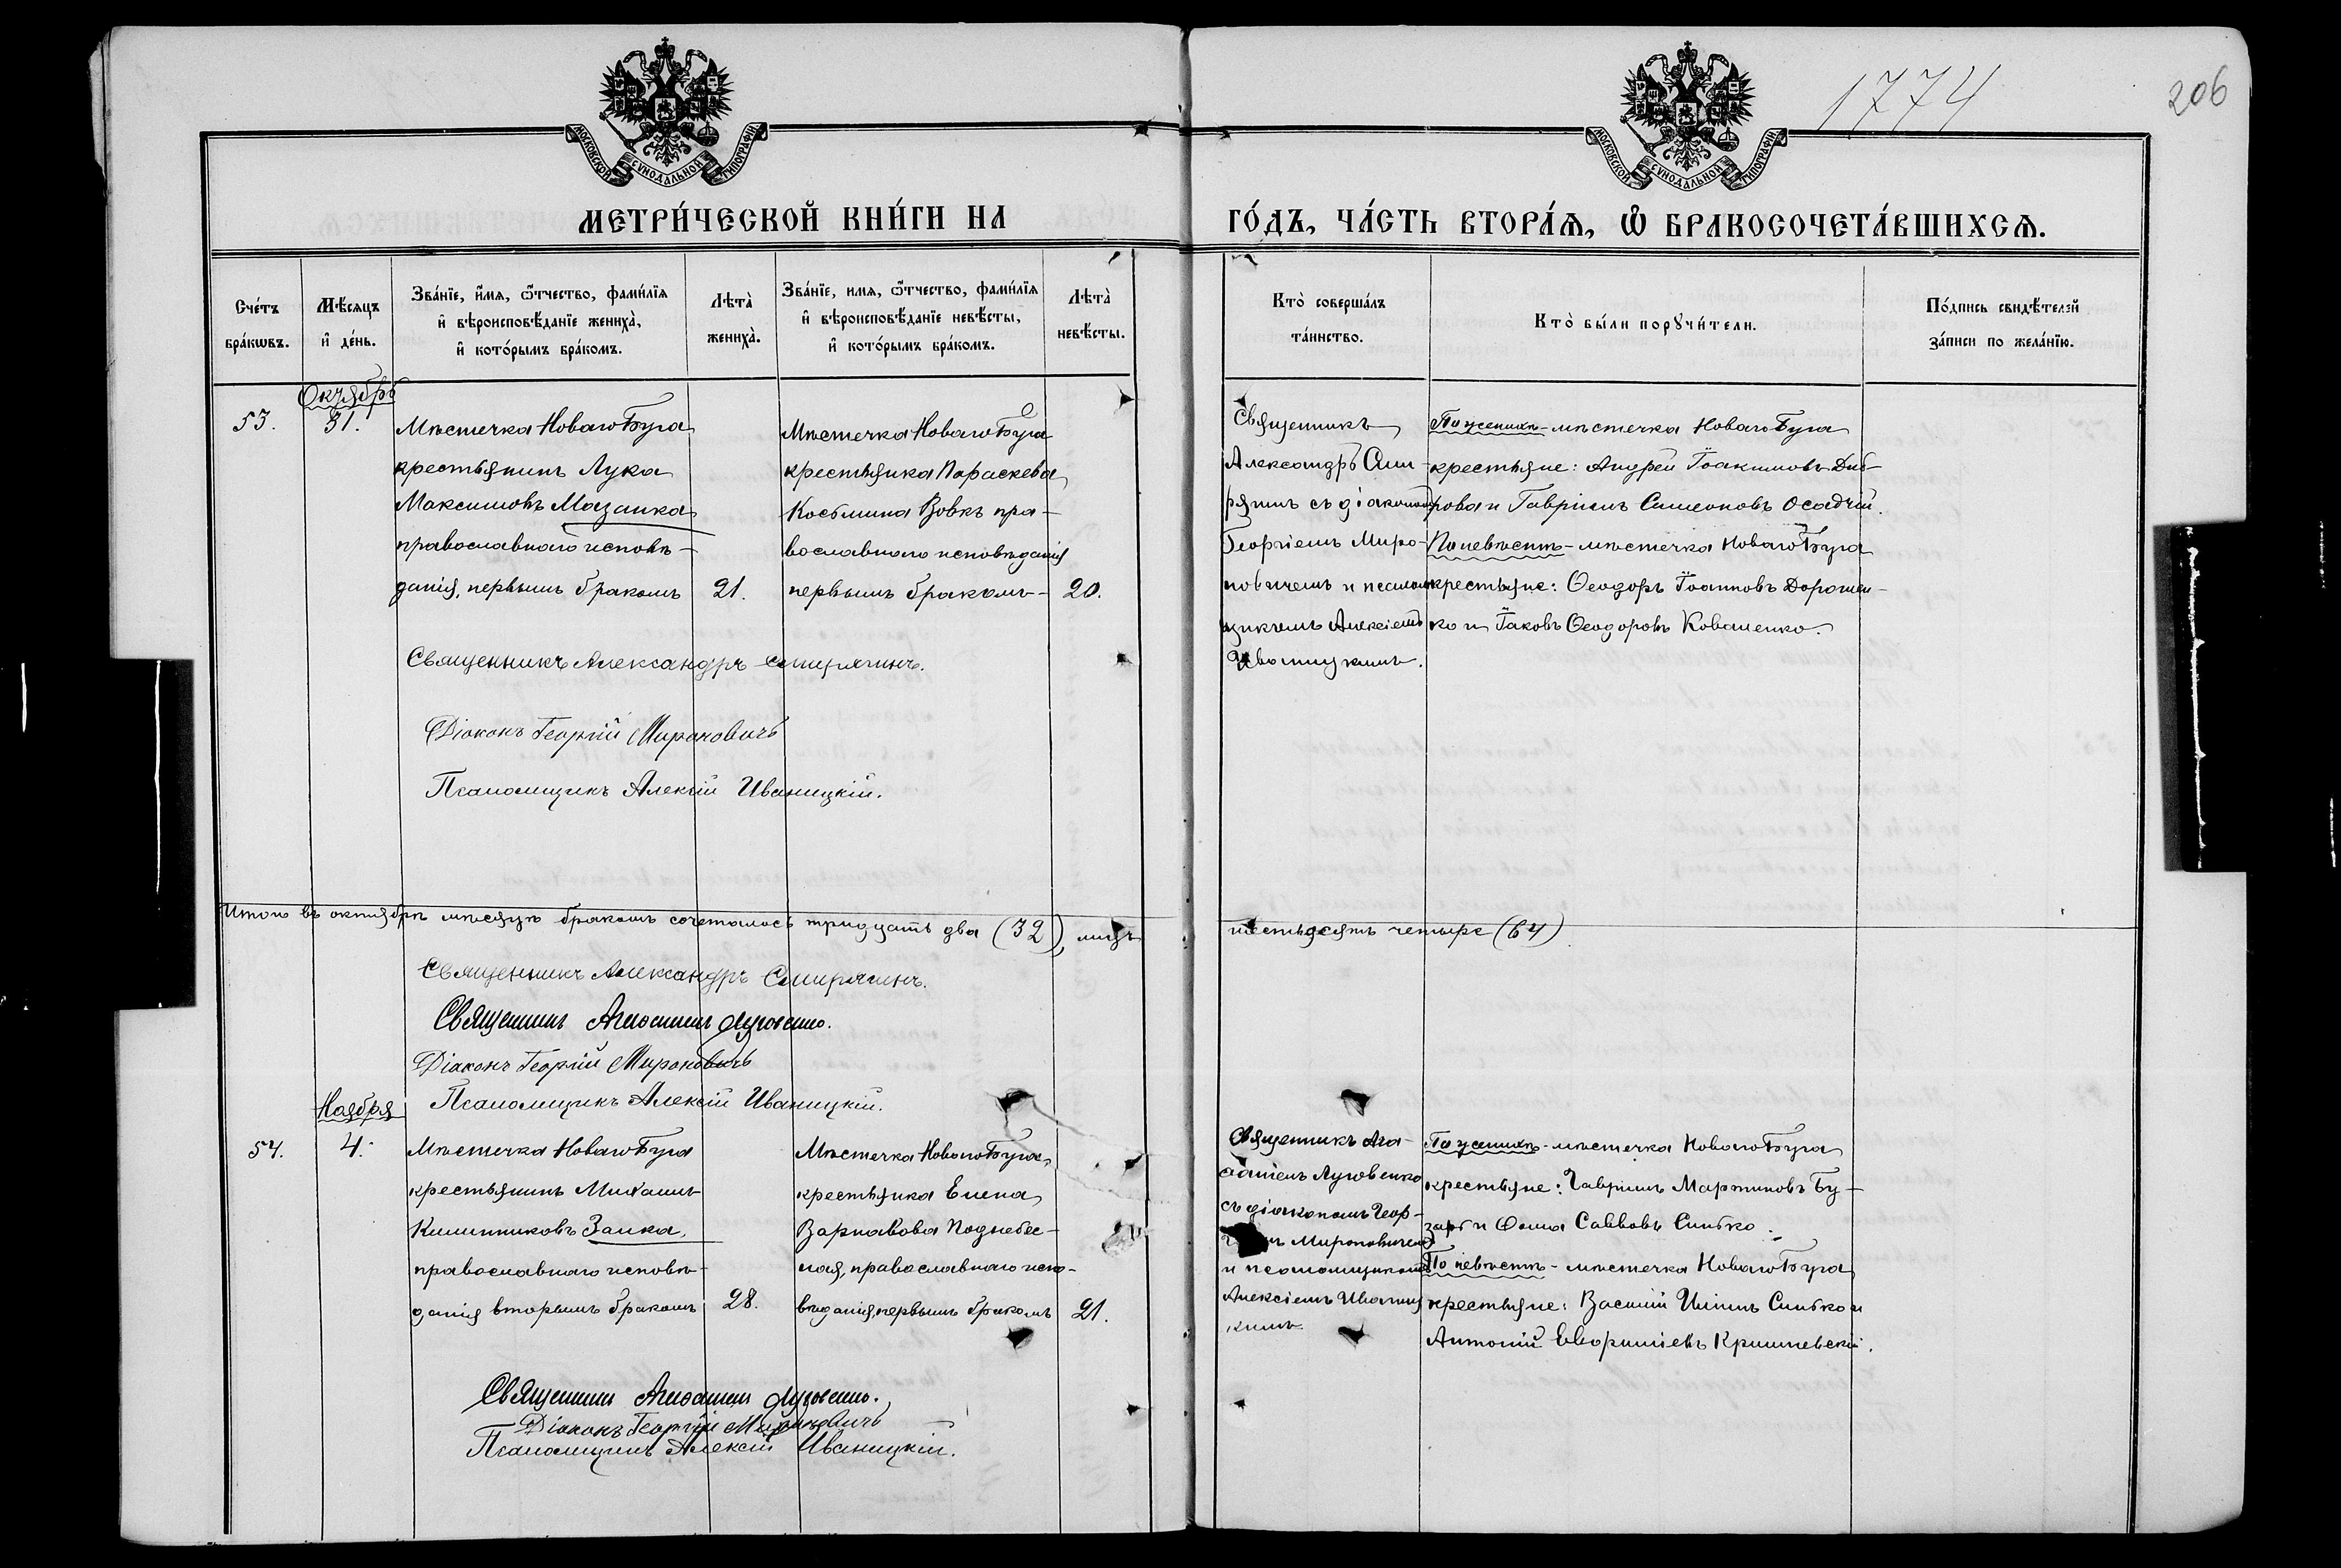 1774
206
МОСКОВСКОЙ СУНОДАЛЬНОЙ ТИПОГРАФІИ
МОСКОВСКОЙ СУНОДАЛЬНОЙ ТИПОГРАФІИ
МЕТРИ́ЧЕСКОЙ КНИ́ГИ НА
ГО́ДЪ, ЧА́СТЬ ВТОРА́Ѧ, Ѽ БРАКОСОЧЕТА́ВШИХСѦ.
Сче́тъ
бра́кѡвъ.
Мѣ́сяцъ
и҆ де́нь.
Зва́нїе, и҆́мѧ, ѻ҆́тчество, фами́лїѧ
и҆ вѣроисповѣ́данїе жениха̀,
и҆ кото́рымъ бра́комъ.
Лѣта̀
жениха̀.
Зва́нїе, имѧ, ѻ҆́тчество, фами́лїѧ
и҆ вѣроисповѣ́данїе невѣ́сты,
и҆ кото́рымъ бра́комъ.
Лѣта̀
невѣ́сты.
Кто̀ соверша́лъ
та́инство.
Кто̀ бы́ли порꙋчи́тели.
По́дпись свидѣ́телей
за́писи по жела́нїю.
Октябрь
53.
31.
Мѣстечка Новаго Буга
крестьянинъ Лука
Максимовъ Мазанка
православнаго исповѣ-
данія, первымъ бракомъ
21.
Мѣстечка Новаго Буга
крестьянка Параскева
Косьмина Вовкъ пра-
вославнаго исповѣданія
первымъ бракомъ-
20.
Священникъ
Александръ Сми-
рягинъ съ діакономъ
Георгіемъ Миро-
новичемъ и псалом-
щикомъ Алексіемъ
Иваницкимъ.
По женихѣ-мѣстечка Новаго Буга
крестьяне: Андрей Іоакимовъ Диб-
рова и Гавріилъ Симеоновъ Осадчій.
По невѣстѣ-мѣстечка Новаго Буга
крестьяне: Ѳеодоръ Іоанновъ Дорошен-
ко и Іаковъ Ѳеодоровъ Коваленко.
Священникъ Александръ Смирягинъ.
Діаконъ Георгій Мироновичъ
Псаломщикъ Алексій Иваницкій.
Итого въ октябрѣ мѣсяцѣ бракомъ сочеталось тридцать два (32), лицъ
шестьдесятъ четыре (64)
Священникъ Александръ Смирягинъ.
Священникъ Аѳанасій Луговенко.
Діаконъ Георгій Мироновичъ
Псаломщикъ Алексій Иваницкій.
Ноября
54.
4.
Мѣстечка Новаго Буга
крестьянинъ Михаилъ
Калинниковъ Заика,
православнаго исповѣ-
данія вторымъ бракомъ
28.
Мѣстечка Новаго Буга,
крестьянка Елена
Варнавова Поднебес-
ная, православнаго испо-
вѣданія, первымъ бракомъ
21.
Священникъ Аѳа-
насіемъ Луговенко
съ діакономъ Геор-
Мироновичемъ
и псаломщикомъ
Алексіемъ Иваниц
кимъ
По женихѣ-мѣстечка Новаго Буга
крестьяне: Гавріилъ Мартиновъ Бу-
заръ и Ѳома Савовъ Синько.
По невѣстѣ-мѣстечка Новаго Буга
крестьяне: Василій Иліинъ Синько и
Антоній Евфиміевъ Кришневскій.
Священникъ Аѳанасій Луговенко.
Діаконъ Георгій Мироновичъ
Псаломщикъ Алексій Иваницкій.